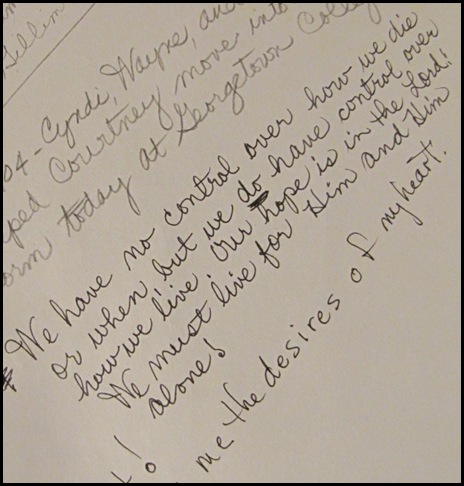 Gillim
04-Cyndi, Wayne, and
ped Courtney move into
orm today at Georgetown Colle
We have no control over how we die
or when, but we do have control over
how we live. Our hope is in the Lord!
We must live for Him and Him
alone!
!
me the desires of my heart.